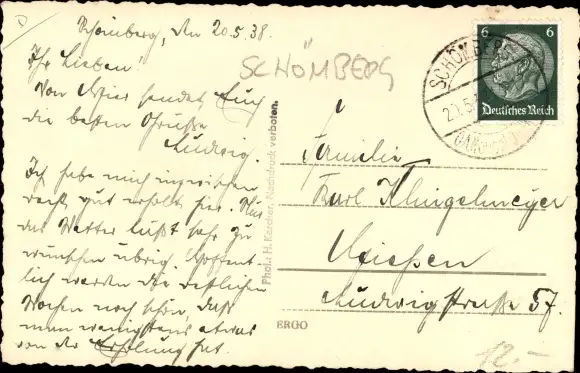 Schömberg, den 20.5.38.
Ihr Lieben!
Von hier sendet Euch
die besten Grüße
Ludwig.
Ich habe mich inzwischen
recht gut erholt hier. Nur
das Wetter läßt sehr zu
wünschen übrig. Hoffent-
lich werden die restlichen
Wochen noch schön, daß
man wenigstens etwas
von der Erholung hat.
SCHÖMBERG
Photo H. Karcher. Nachdruck verboten.
ERGO
6 6
Deutsches Reich
SCHÖMBERG
20.5
Familie
Karl Klingelmeyer
Gießen
Ludwigstraße 57.
12.-